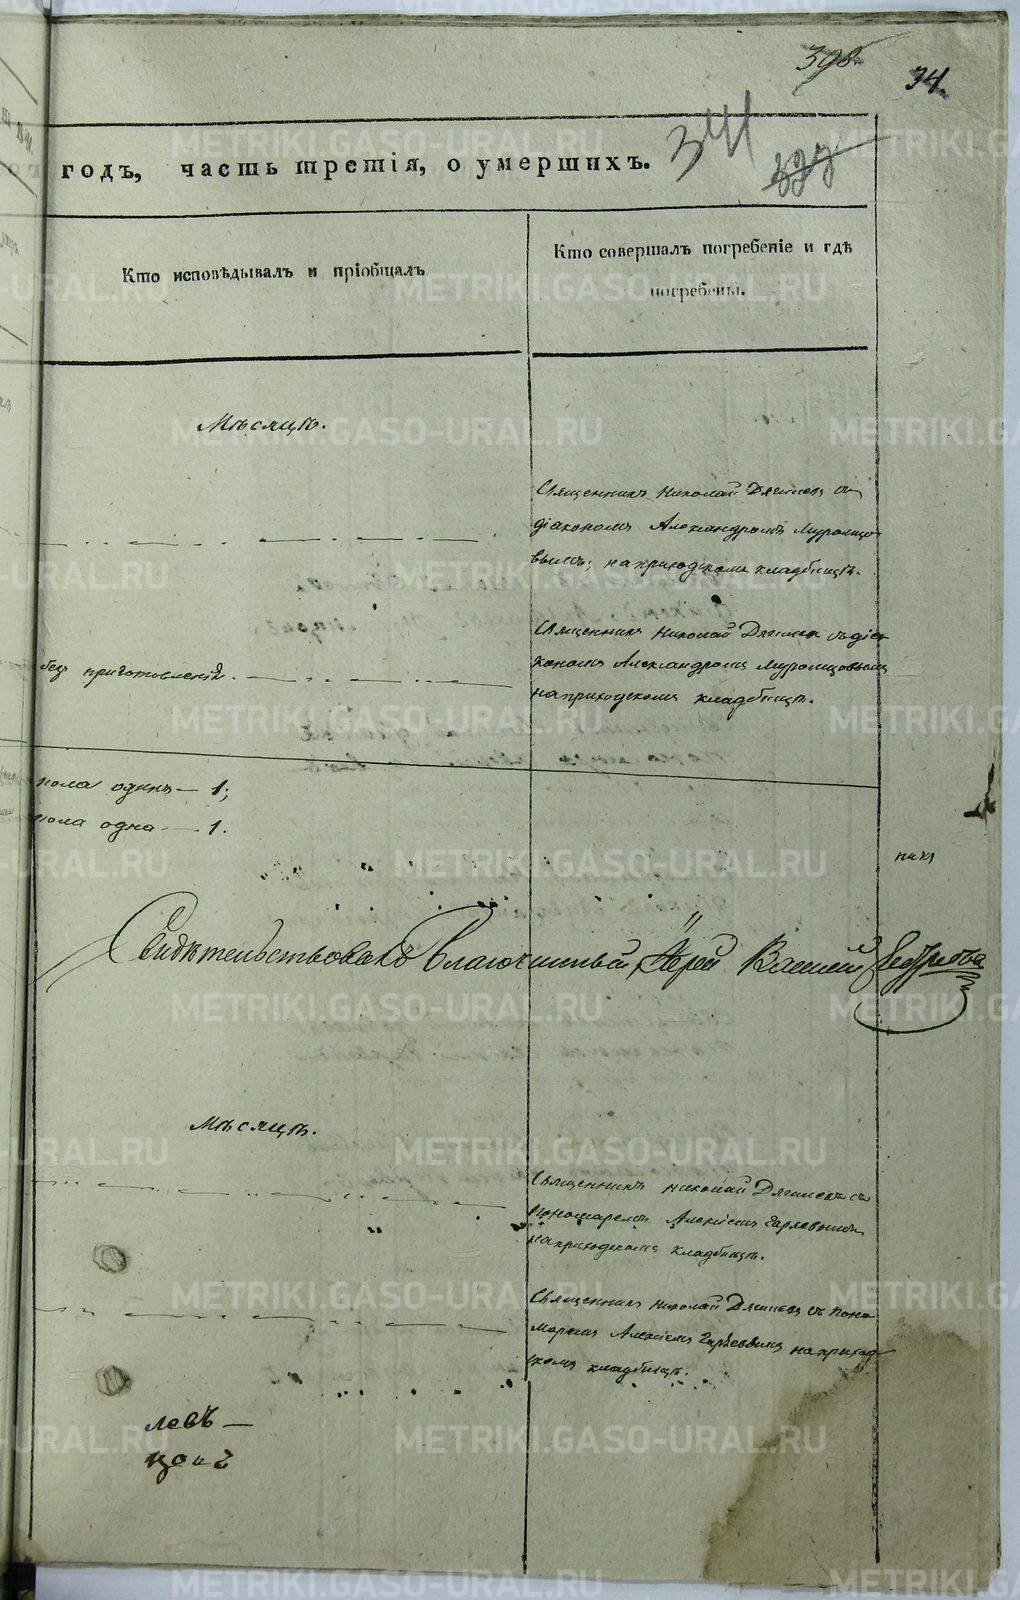 398.
34.
341
годъ, часть третія, о умершихъ.
Кто исповѣдывалъ и пріобщалъ
Кто совершалъ погребеніе и гдѣ
погребены.
Мѣсяцъ.
Священникъ Николай Дягилевъ съ
діакономъ Александромъ Муромцо
вымъ; на приходскомъ кладбищѣ.
Священникъ Николай Дягилевъ съ діа
кономъ Александромъ Муромцовымъ
на приходскомъ кладбищѣ.
безъ приготовленія.
пола одинъ — 1;
пола одна — 1.
ника
Свидѣтельствовалъ Благочинный, Іерей Василій
Мѣсяцъ.
Священникъ Николай Дягилевъ съ
пономаремъ Алексіемъ
на приходскомъ кладбищѣ.
Священникъ Николай Дягилевъ съ поно
маремъ Алексіемъ на приход
скомъ кладбищѣ.
левъ —
METRIKI.GASO-URAL.RU